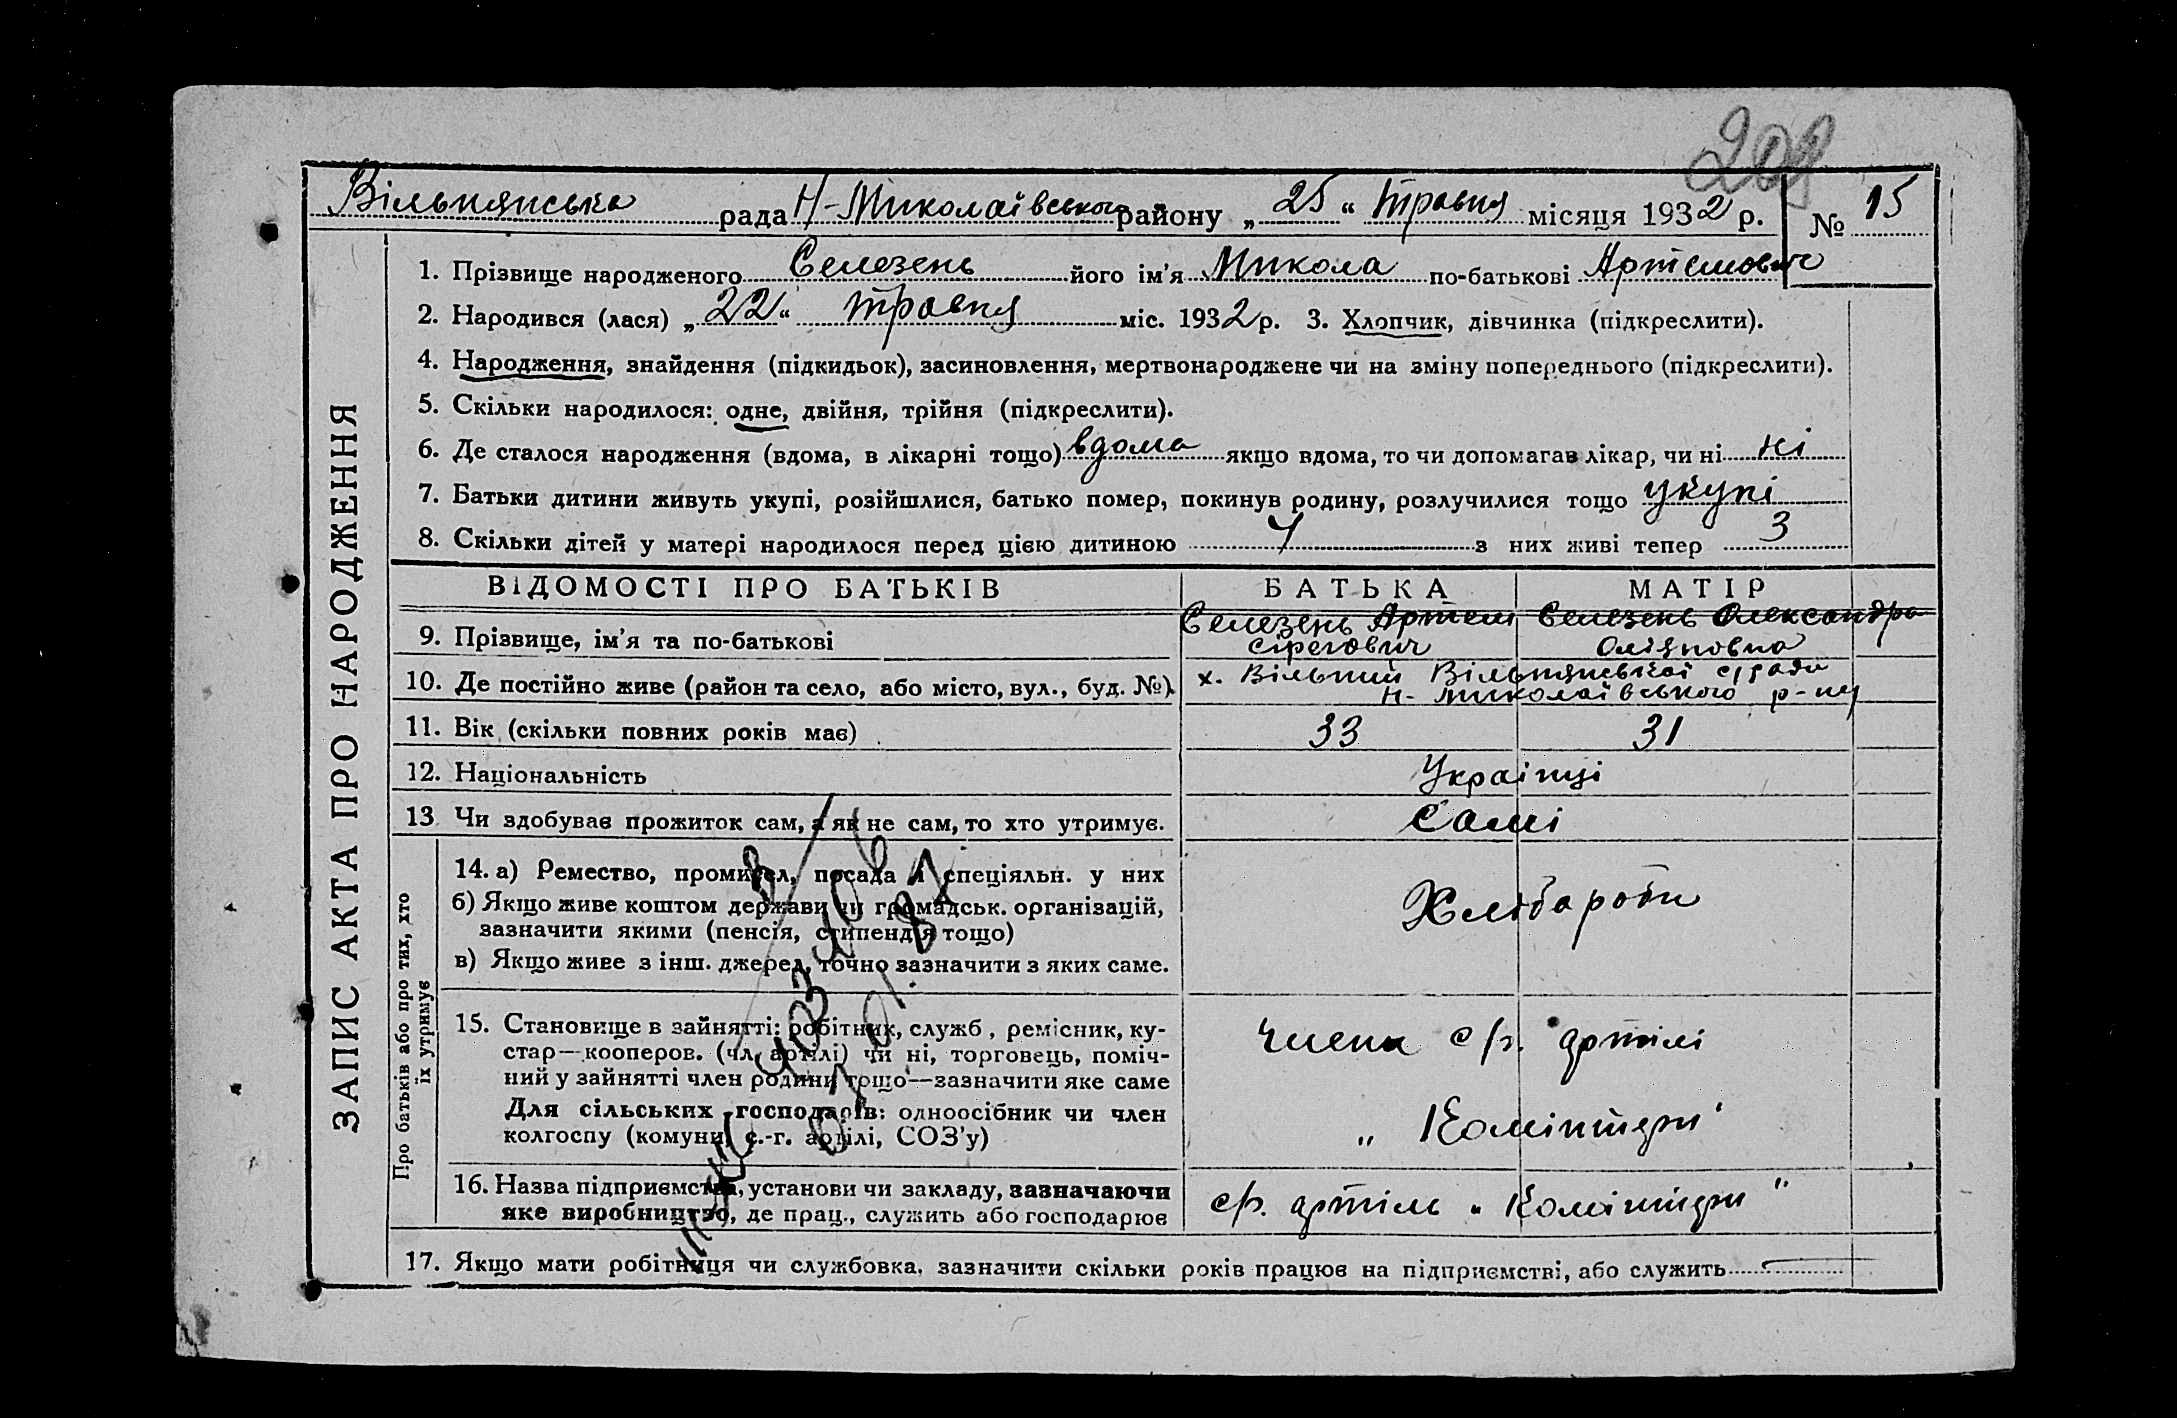 209
Вільнянська рада Н-Миколаївського району „ 25 “ травня місяця 1932 р. № 15
ЗАПИС АКТА ПРО НАРОДЖЕННЯ
1. Прізвище народженого Селезень його ім’я Микола по-батькові Артемович
2. Народився (лася) „ 22 “ травня міс. 1932 р. 3. Хлопчик, дівчинка (підкреслити).
4. Народження, знайдення (підкидьок), засиновлення, мертвонароджене чи на зміну попереднього (підкреслити).
5. Скільки народилося: одне, двійня, трійня (підкреслити).
6. Де сталося народження (вдома, в лікарні тощо) вдома якщо вдома, то чи допомагав лікар, чи ні ні
7. Батьки дитини живуть укупі, розійшлися, батько помер, покинув родину, розлучилися тощо укупі
8. Скільки дітей у матері народилося перед цією дитиною 4 з них живі тепер 3
ВІДОМОСТІ ПРО БАТЬКІВ БАТЬКА МАТІР
9. Прізвище, ім’я та по-батькові Селезень Артем Селезень Олександра
10. Де постійно живе (район та село, або місто, вул., буд. №). х. Вільний Вільнянської с/ради
Н-Миколаївського р-ну
11. Вік (скільки повних років має) 33 31
12. Національність Українці
13 Чи здобував прожиток сам, а як не сам, то хто утримує. Самі
Про батьків або про тих, хто
їх утримує
14. а) Ремество, промисел, посада й спеціяльн. у них Хлібороби
б) Якщо живе коштом держави чи громадськ. організацій,
зазначити якими (пенсія, стипендія тощо)
в) Якщо живе з інш. джерел, точно зазначити з яких саме.
15. Становище в зайнятті: робітник, служб, ремісник, ку-
стар—кооперов. (чл. артілі) чи ні, торговець, поміч-
ний у зайнятті член родини тощо—зазначити яке саме
Для сільських господарів: одноосібник чи член
колгоспу (комуни, с.-г. артілі, СОЗ’у)
члени с/г. артілі
„ Комінтерн
16. Назва підприємства, установи чи закладу, зазначаючи
яке виробництво, де прац., служить або господарює
с/г. артіль „ Комінтерн “
17. Якщо мати робітниця чи службовка, зазначити скільки років працює на підприємстві, або служить